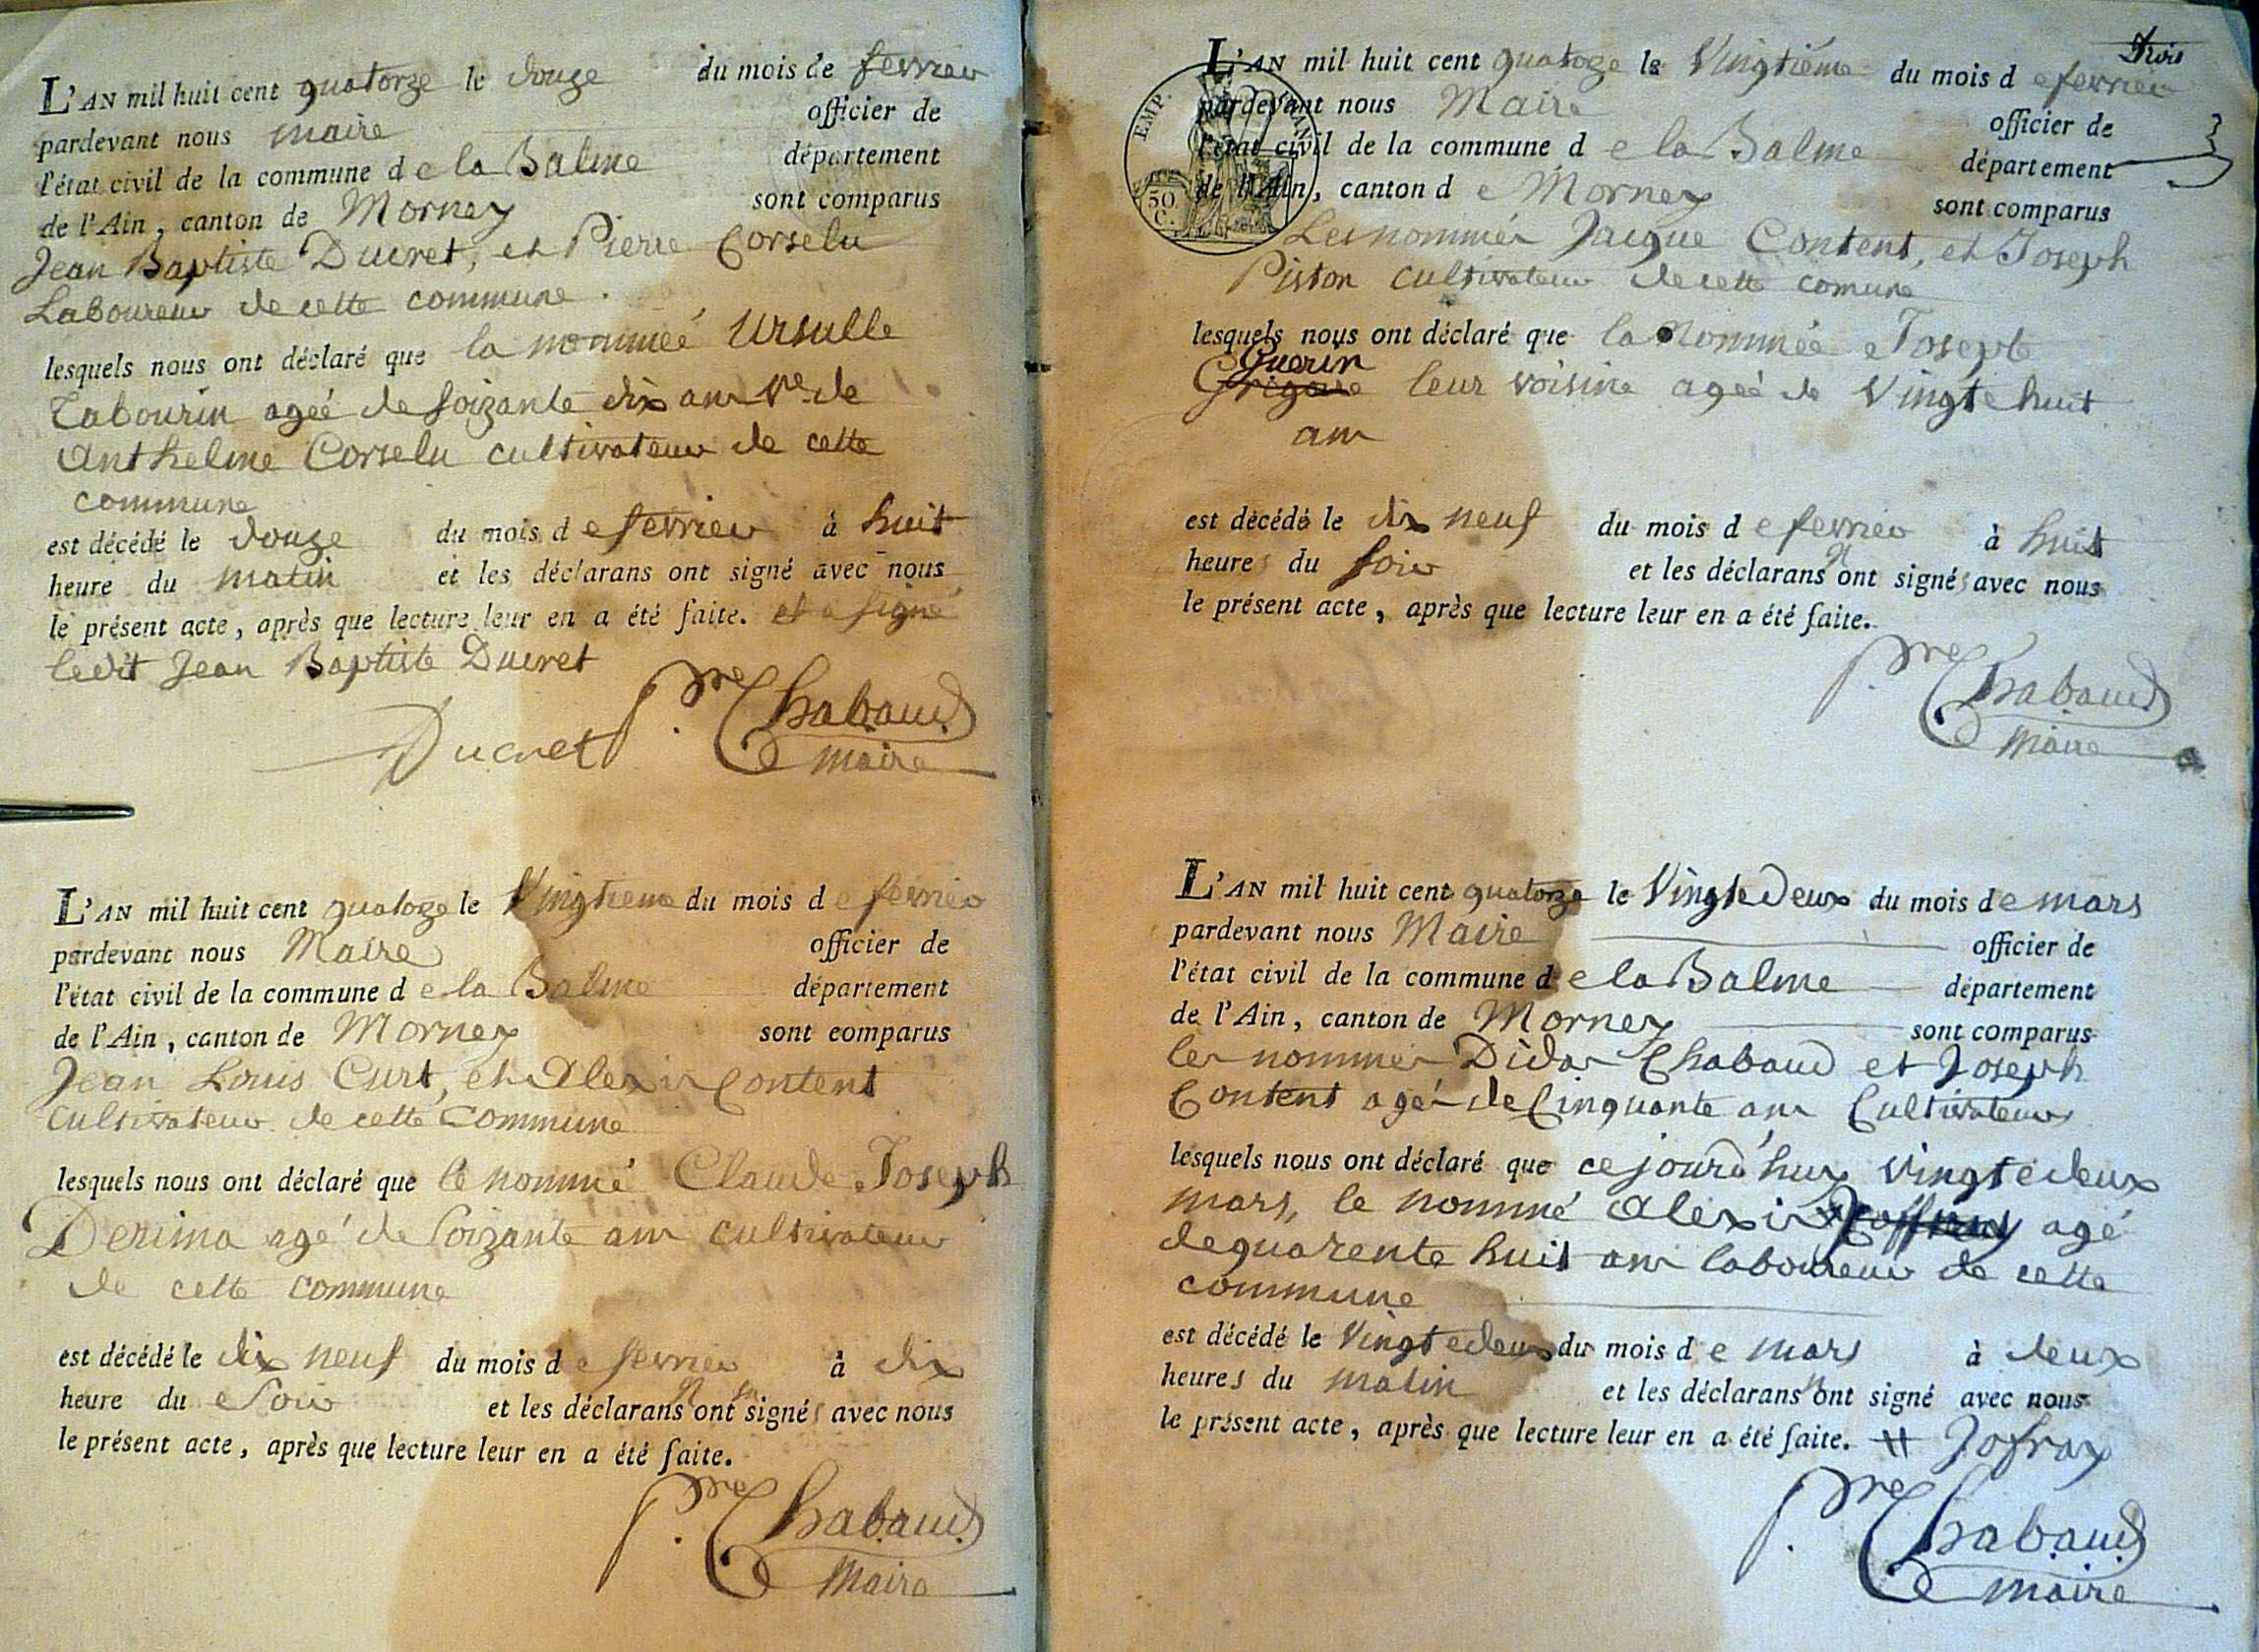 L'AN mil huit cent quatorze le douze du mois de fevrier
pardevant nous maire officier de
l'état civil de la commune de la Balme département
de l'Ain, canton de Mornay sont comparus
Jean Baptiste Ducret, et Pierre Corselu
Laboureur de cette commune.
lesquels nous ont déclaré que la nommeé Ursulle
Tabourin ageé de soizante dix ans Ve de
Anthelme Corselu cultivateur de cette
commune
est décédé le douze du mois de fevrier à huit
heure du matin et les déclarans ont signé avec nous
le présent acte, après que lecture leur en a été faite. et a signé
ledit Jean Baptiste Ducret
Ducret P.re Chabaud
maire
L'AN mil huit cent quatorze le Vingtieme du mois de fevrier
pardevant nous Maire officier de
l'état civil de la commune de la Balme département
de l'Ain, canton de Mornay sont comparus
Jean Louis Curt, et Alexis Content
Cultivateur de cette Commune
lesquels nous ont déclaré que le nommé Claude Joseph
Derima agé de Soizante ans cultivateur
de cette commune
est décédé le dix neuf du mois de fevrier à dix
heure du Soir et les déclarans n'ont su signé avec nous
le présent acte, après que lecture leur en a été faite.
P.re Chabaud
Maire
Trois
L'AN mil huit cent quatoze le Vingtième du mois de fevrier
pardevant nous Maire officier de
l'état civil de la commune de la Balme département
de l'Ain, canton de Mornay sont comparus
EMP.
50
C.
Les nommés Jacque Content, et Joseph
Piston cultivateur de cette comune
lesquels nous ont déclaré que la Nommée Josephte
Guerin
leur voisine ageé de Vingte huit
ans
est décédé le dix neuf du mois de fevrier à huit
heures du soir et les déclarans n'ont signés avec nous
le présent acte, après que lecture leur en a été faite.
P.re Chabaud
Maire
L'AN mil huit cent quatorze le Vingte deux du mois de mars
pardevant nous Maire officier de
l'état civil de la commune de la Balme département
de l'Ain, canton de Mornay sont comparus
les nommés Didas Chabaud et Joseph
Content agés de Cinquante ans Cultivateurs
lesquels nous ont déclaré que ce jourd'huy vingte deux
mars, le nommé Alexis agé
de quarente huit ans laboureur de cette
commune
est décédé le Vingte deux du mois de mars à deux
heures du matin et les déclarans n'ont signé avec nous
le présent acte, après que lecture leur en a été faite. # Jofray
P.re Chabaud
maire